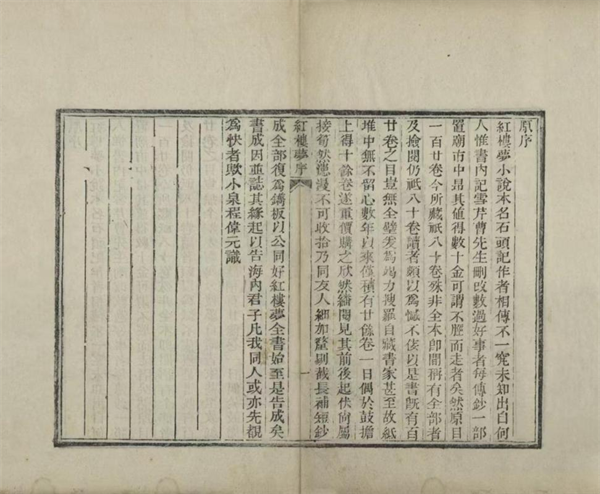 原序
紅樓夢小說本名石頭記作者相傳不一究未知出自何
人惟書內記雪芹曹先生刪改數過好事者每傳鈔一部
置廟市中昂其值得數十金可謂不脛而走者矣然原目
一百廿卷今所藏祇八十卷殊非全本即間稱有全部者
及檢閱仍祇八十卷讀者頗以爲憾不佞以是書旣有百
廿卷之目豈無全璧爰爲竭力搜羅自藏書家甚至故紙
堆中無不留心數年以來僅積有廿餘卷一日偶於鼓擔
上得十餘卷遂重價購之欣然繙閱見其前後起伏尚屬
接筍然漶漫不可收拾乃同友人細加釐剔截長補短鈔
紅樓夢序 一
成全部復爲鐫板以公同好紅樓夢全書始至是告成矣
書成因並誌其緣起以告海內君子凡我同人或亦先覩
爲快者歟小泉程偉元識